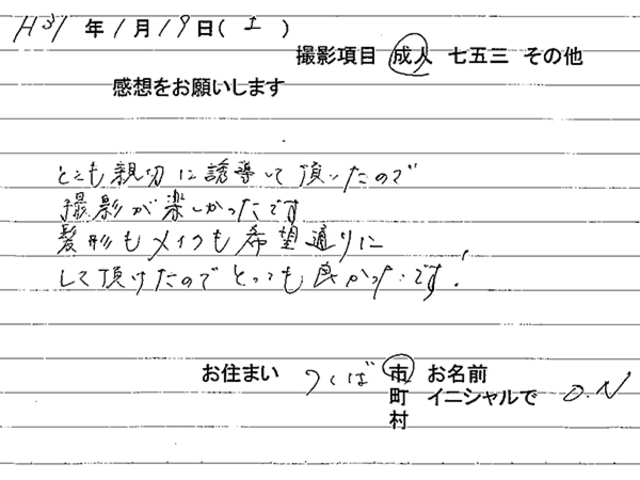 H31年1月19日(土)
撮影項目 成人 七五三 その他
感想をお願いします
とても親切に誘導して頂いたので
撮影が楽しかったです
髪形もメイクも希望通りに
して頂けたのでとっても良かったです!
お住まい つくば 市 お名前
町 イニシャルで O.N
村